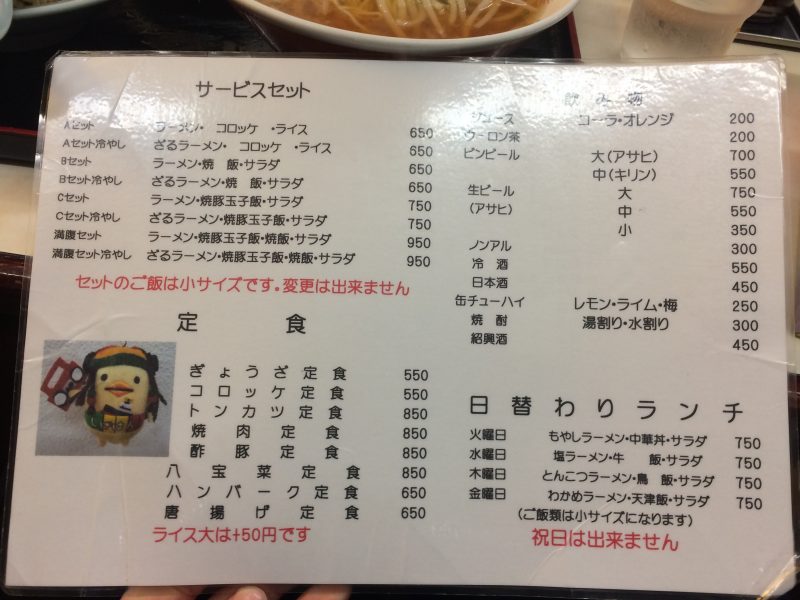 サービスセット
Aセット ラーメン・ コロッケ ・ライス 650
Aセット冷やし ざるラーメン・ コロッケ ・ライス 650
Bセット ラーメン・焼 飯・サラダ 650
Bセット冷やし ざるラーメン・焼 飯・サラダ 650
Cセット ラーメン・焼豚玉子飯・サラダ 750
Cセット冷やし ざるラーメン・焼豚玉子飯・サラダ 750
満腹セット ラーメン・焼豚玉子飯・焼飯・サラダ 950
満腹セット冷やし ざるラーメン・焼豚玉子飯・焼飯・サラダ 950
セットのご飯は小サイズです。変更は出来ません
定 食
ぎょうざ定食 550
コロッケ定食 550
トンカツ定食 850
焼肉定食 850
酢豚定食 850
八宝菜定食 850
ハンバーク定食 650
唐揚げ定食 650
ライス大は+50円です
飲み物
ジュース コーラ・オレンジ 200
ウーロン茶 200
ビンビール 大(アサヒ) 700
中(キリン) 550
生ビール 大 750
(アサヒ) 中 550
小 350
ノンアル 300
冷酒 550
日本酒 450
缶チューハイ レモン・ライム・梅 250
焼酎 湯割り・水割り 300
紹興酒 450
日替わりランチ
火曜日 もやしラーメン・中華丼・サラダ 750
水曜日 塩ラーメン・牛 飯・サラダ 750
木曜日 とんこつラーメン・鳥 飯・サラダ 750
金曜日 わかめラーメン・天津飯・サラダ 750
(ご飯類は小サイズになります)
祝日は出来ません